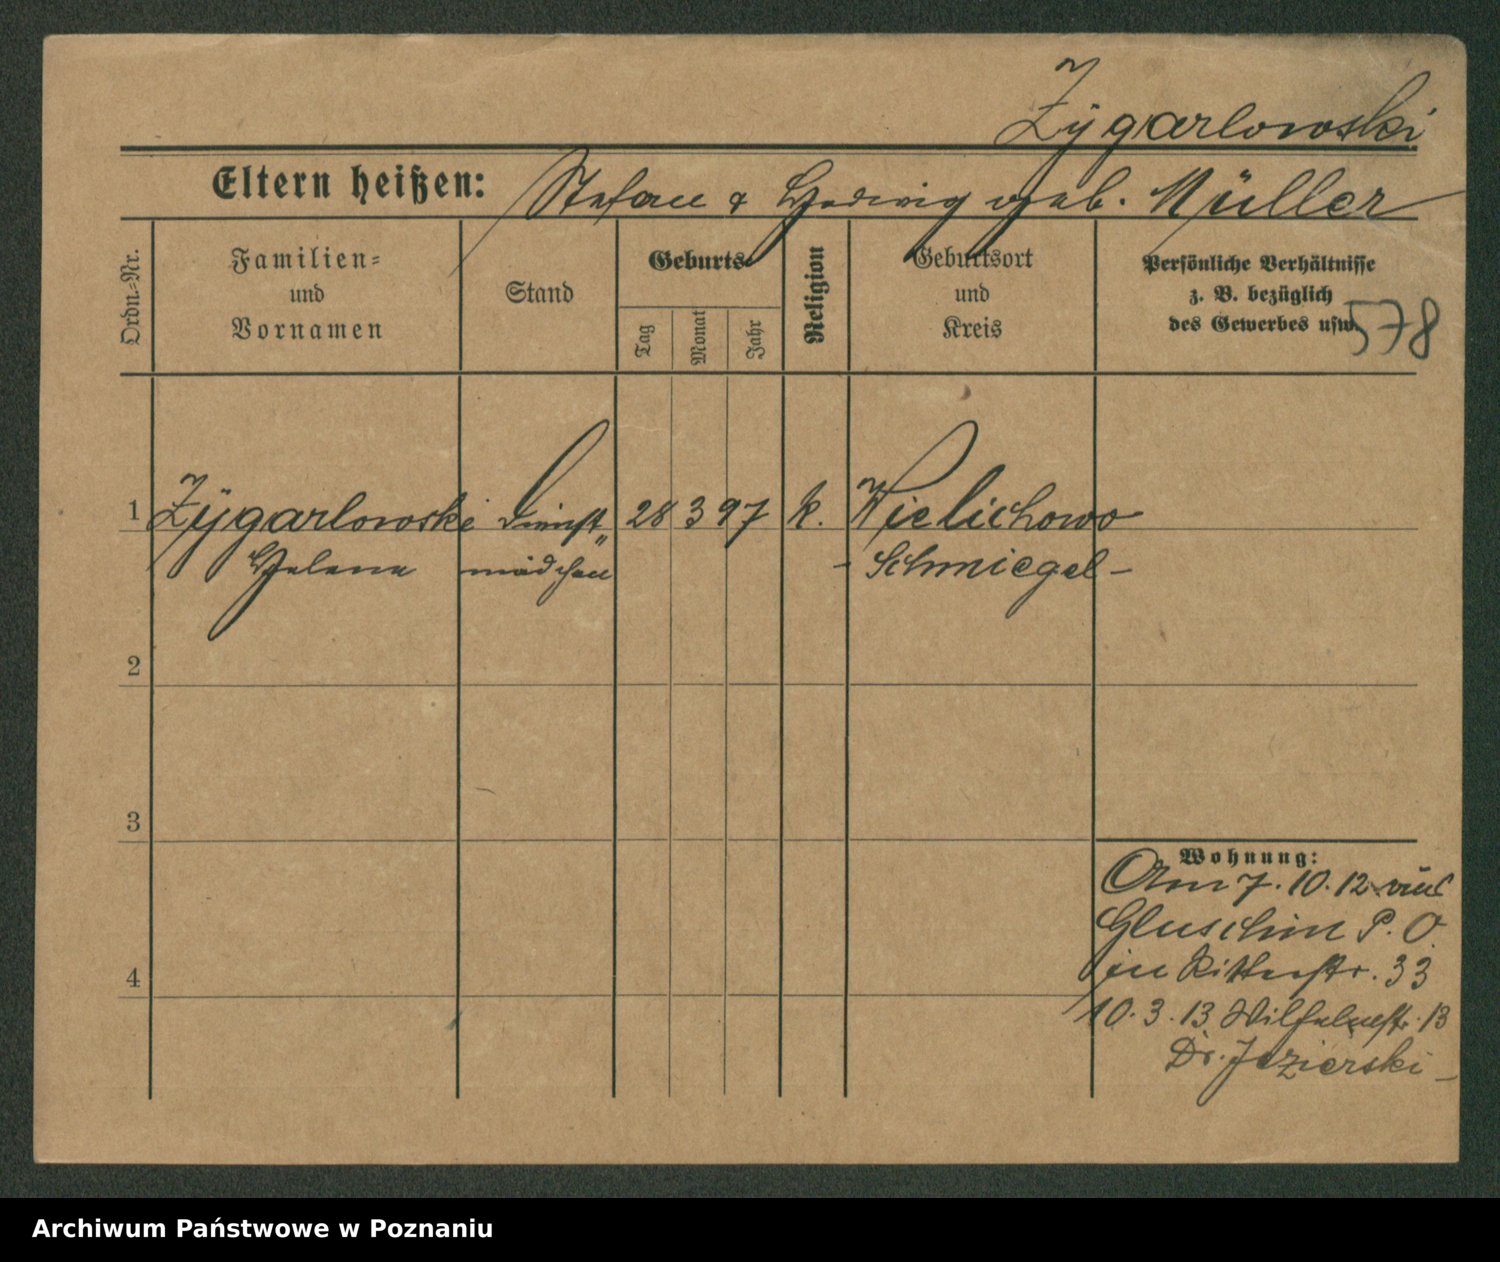 Zÿgarlowski
Eltern heißen: Stefan & Hedwig geb. Müller
Ordn.-Nr.
Familien-
und
Vornamen
Stand
Geburts-
Tag
Monat
Jahr
Religion
Geburtsort
und
Kreis
Persönliche Verhältnisse
z. B. bezüglich
des Gewerbes usw.
578
1 Zÿgarlowski Dienst„ 28 3 97 k. Wielichowo
Helene mädchen - Schmiegel -
2
3
4
Wohnung:
Am 7. 10. 12 aus
Gluschin P. O.
in Ritterstr. 33
10. 3. 13 Wilhelmstr. 13
Dr. Jezierski -
Archiwum Państwowe w Poznaniu